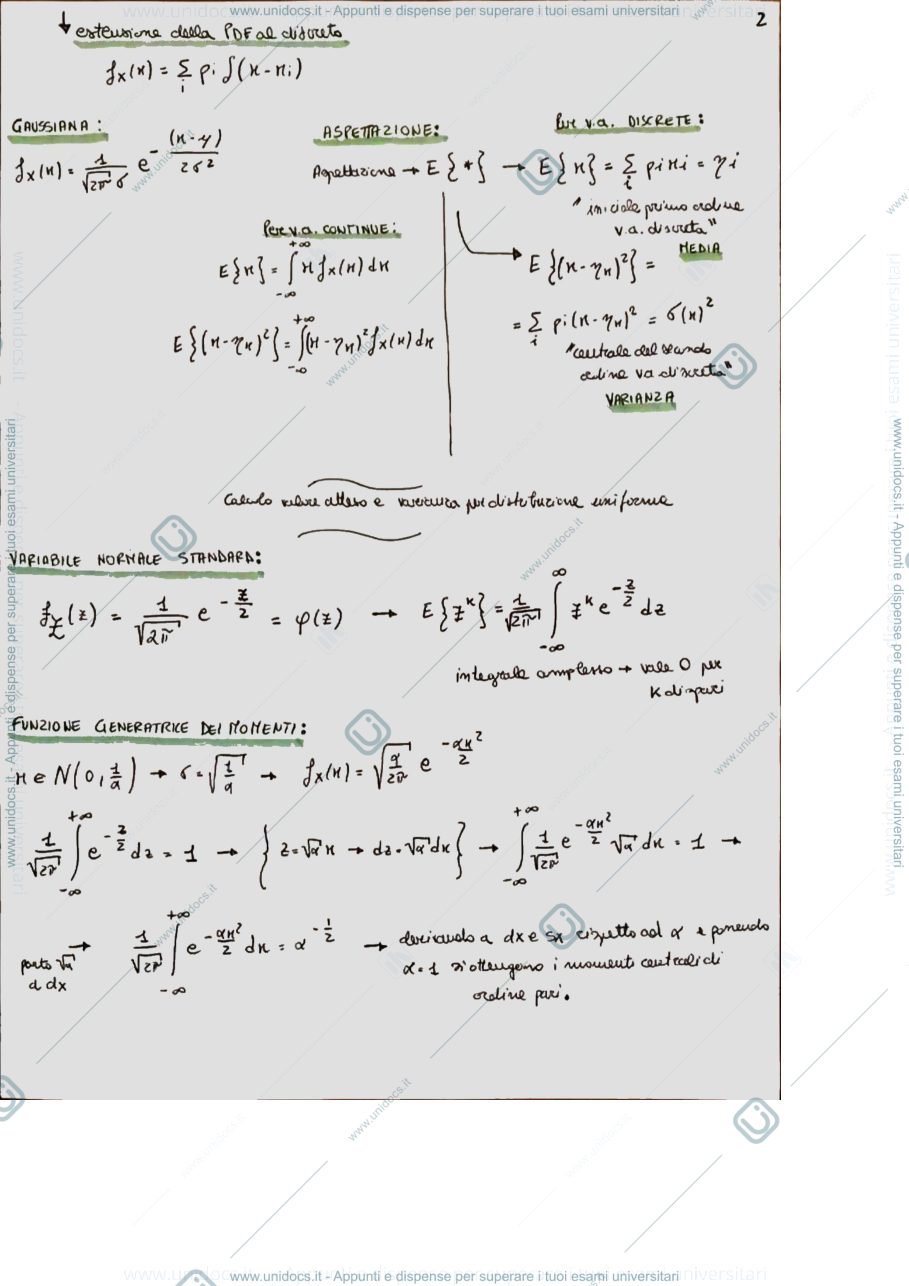 www.unidocs.it - Appunti e dispense per superare i tuoi esami universitari
2
↓ estensione della PDF al discreto
fx(x) = Σi pi δ(x - xi)
GAUSSIANA:
fx(x) = 1/(√2π σ) e^-(x-η)/2σ²
ASPETTAZIONE:
Aspettazione → E{*} →
Per v.a. DISCRETE:
E{x} = Σi pi xi = ηi
"iniziale primo ordine
v.a. discreta"
MEDIA
E{(x-ηx)²} =
= Σi pi(x-ηx)² = σ(x)²
"centrale del secondo
ordine va discreta"
VARIANZA
Per v.a. CONTINUE:
E{x} = ∫-∞+∞ x fx(x) dx
E{(x-ηx)²} = ∫-∞+∞ (x-ηx)² fx(x) dx
Calcolo valore atteso e varianza per distribuzione uniforme
VARIABILE NORMALE STANDARD:
fz(z) = 1/√2π e^-z/2 = φ(z) → E{z^k} = 1/√2π ∫-∞∞ z^k e^-z/2 dz
integrale complesso → vale 0 per
k dispari
FUNZIONE GENERATRICE DEI MOMENTI:
x ∈ N(0, 1/α) → σ = √1/α → fx(x) = √α/2π e^-αx²/2
1/√2π ∫-∞+∞ e^-z/2 dz = 1 → {z = √α x → dz = √α dx} → ∫-∞+∞ 1/√2π e^-αx²/2 √α dx = 1 →
porto √α
a dx
→ 1/√2π ∫-∞+∞ e^-αx²/2 dx = α^-1/2 → derivando a dx e sx rispetto ad α e ponendo
α = 1 si ottengono i momenti centrali di
ordine pari.
www.unidocs.it - Appunti e dispense per superare i tuoi esami universitari